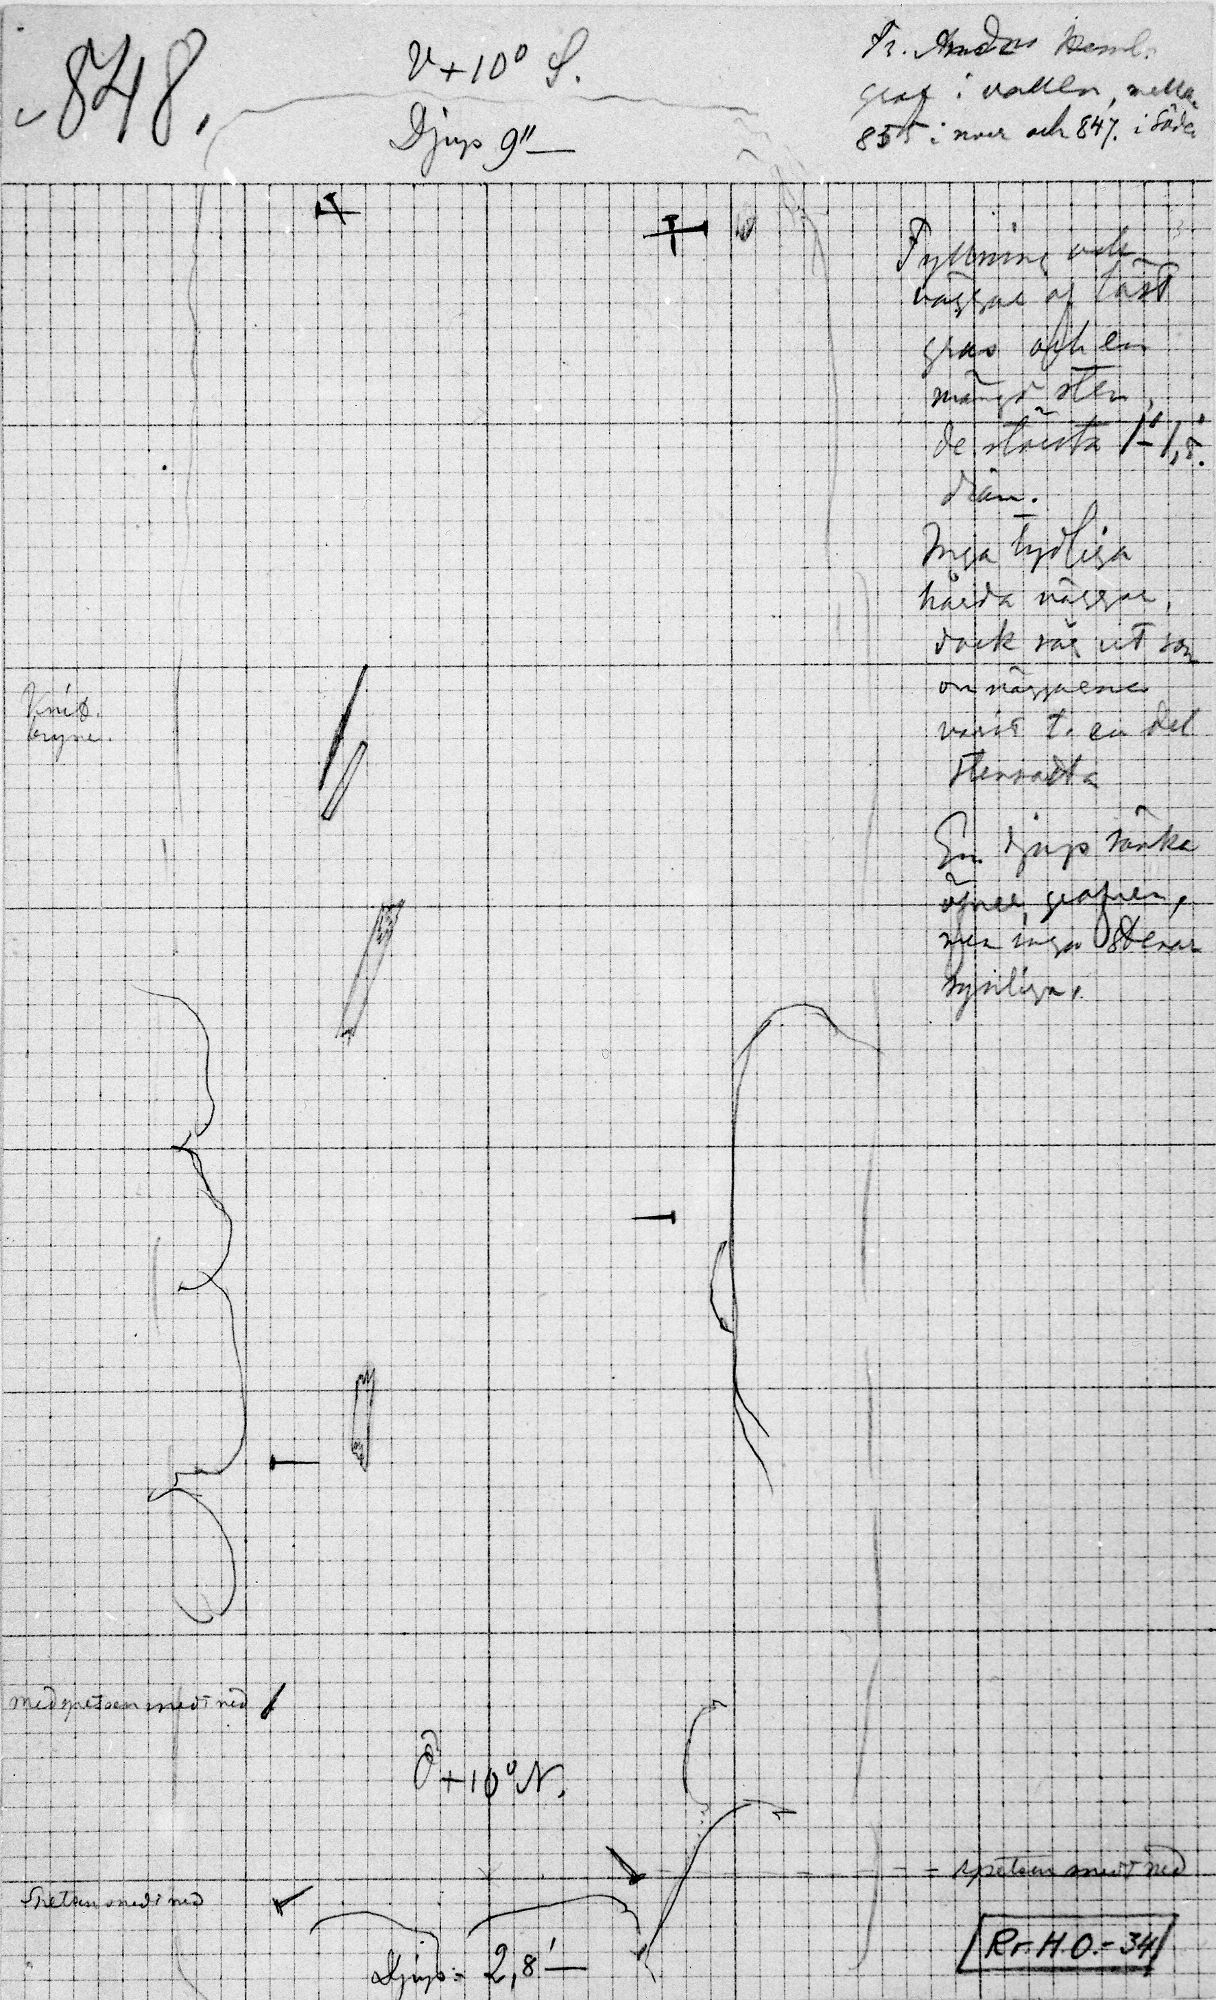 848.
V+10° S.
Djup 9"
Tr. Andra Heml.
graf i vallen, mella.
855 i norr och 847. i Söder
Fyllning och
väggar af löst
grus och en
mängd sten,
de största 1'-1,5'
diam.
Inga tydliga
hårda väggar,
dock såg ut som
om väggarne
varit t. en del
stensatta
En djup sänka
öfver grafven,
men inga stenar
synliga.
Knif.
bryne.
med spetsen snedt ned
Ö+10° N.
spetsen snedt ned
Spetsen snedt ned
Djup = 2,8'
Rr. H O.-34